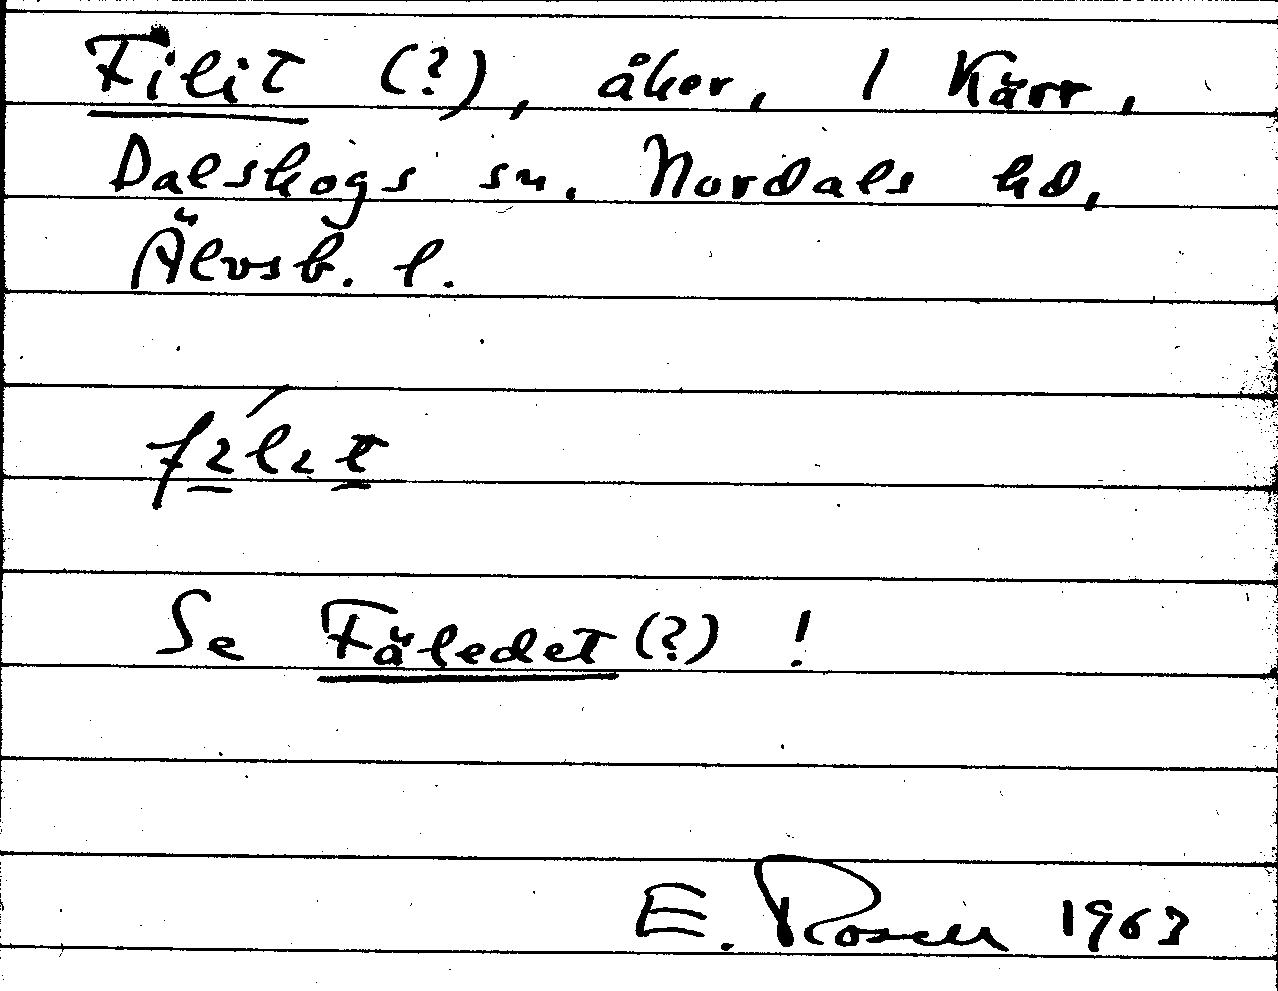 Filit (?), åker, 1 Kärr,
Dalskogs sn. Nordals hd,
Älvsb. l.
Se Fäledet (?) !
E. Rosell 1963